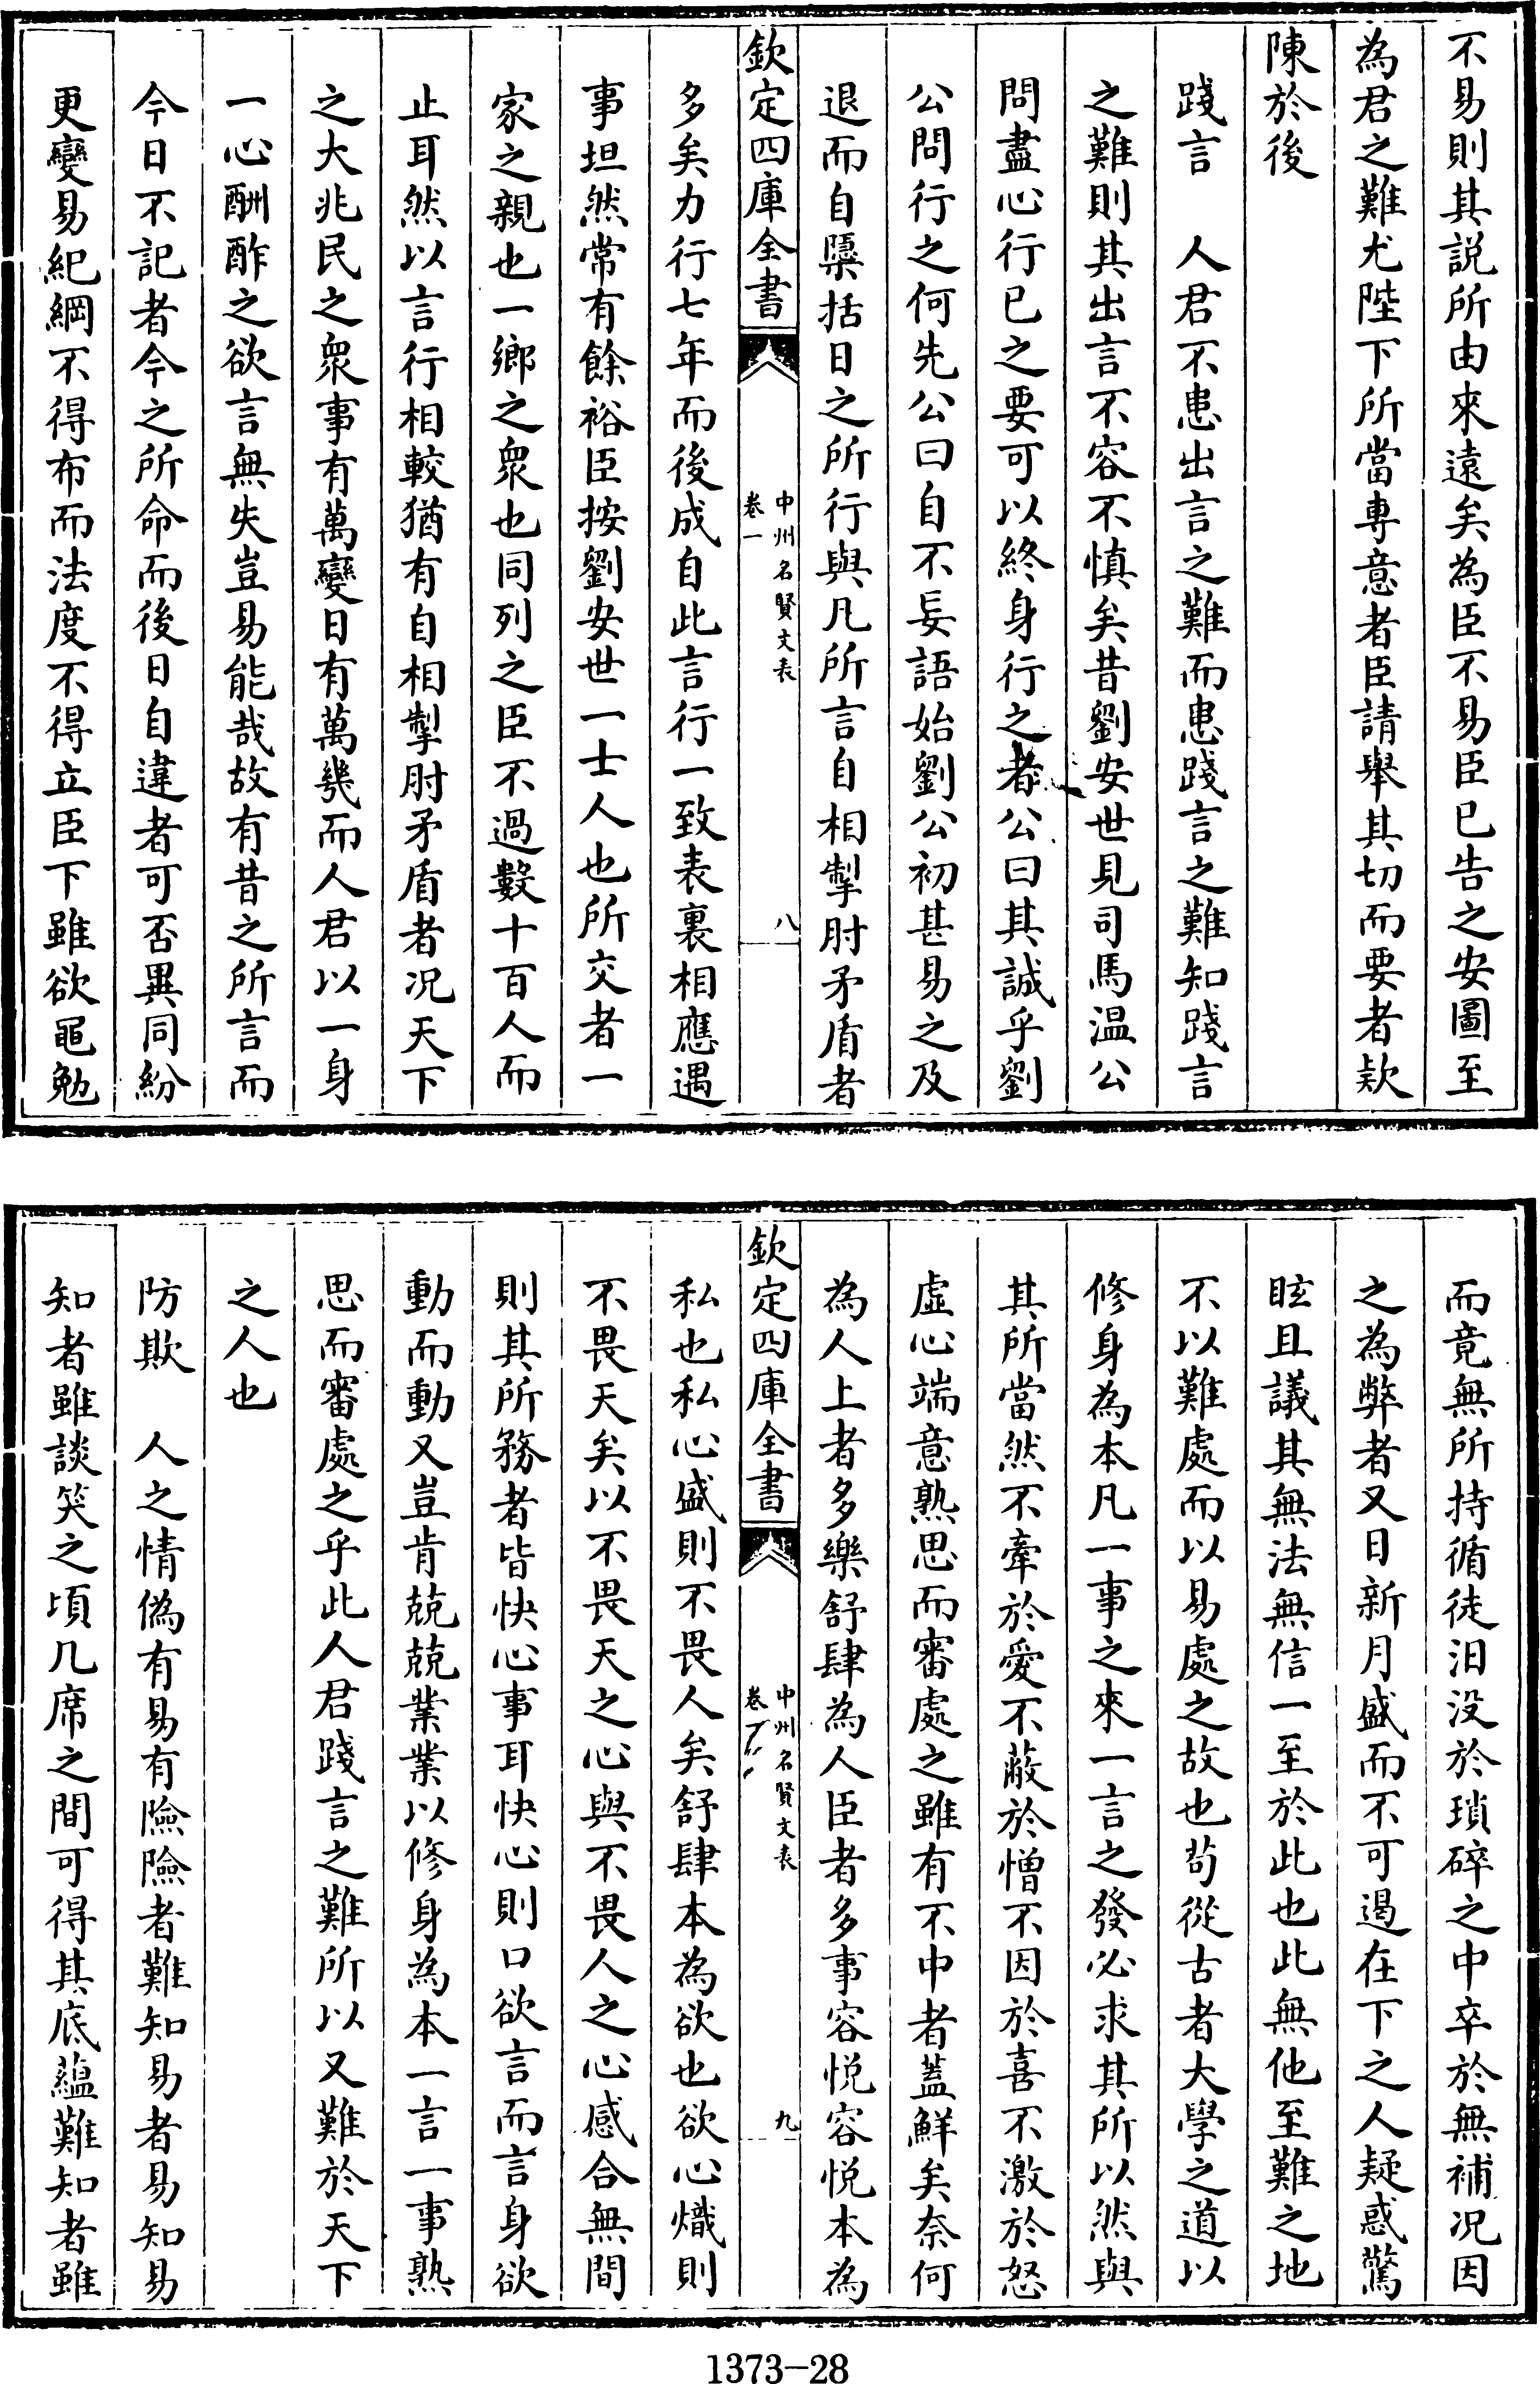 不易則其説所由來遠矣為臣不易臣已告之安圖至
為君之難尤陛下所當專意者臣請舉其切而要者欵
陳於後
踐言　人君不患出言之難而患踐言之難知踐言
之難則其出言不容不慎矣昔劉安世見司馬温公
問盡心行已之要可以終身行之者公曰其誠乎劉
公問行之何先公曰自不妄語始劉公初甚易之及
退而自櫽括日之所行與凡所言自相掣肘矛盾者
欽定四庫全書
中州名賢文表
卷一
八
多矣力行七年而後成自此言行一致表裏相應遇
事坦然常有餘裕臣按劉安世一士人也所交者一
家之親也一鄉之衆也同列之臣不過數十百人而
止耳然以言行相較猶有自相掣肘矛盾者况天下
之大兆民之衆事有萬變日有萬幾而人君以一身
一心酬酢之欲言無失豈易能哉故有昔之所言而
今日不記者今之所命而後日自違者可否異同紛
更變易紀綱不得布而法度不得立臣下雖欲黽勉
而竟無所持循徒汨没於瑣碎之中卒於無補况因
之為弊者又日新月盛而不可遏在下之人疑惑驚
眩且議其無法無信一至於此也此無他至難之地
不以難處而以易處之故也苟從古者大學之道以
修身為本凡一事之來一言之發必求其所以然與
其所當然不牽於愛不蔽於憎不因於喜不激於怒
虛心端意熟思而審處之雖有不中者蓋鮮矣奈何
為人上者多樂舒肆為人臣者多事容悦容悦本為
欽定四庫全書
中州名賢文表
卷一
九
私也私心盛則不畏人矣舒肆本為欲也欲心熾則
不畏天矣以不畏天之心與不畏人之心感合無間
則其所務者皆快心事耳快心則口欲言而言身欲
動而動又豈肯兢兢業業以修身為本一言一事熟
思而審處之乎此人君踐言之難所以又難於天下
之人也
防欺　人之情偽有易有險險者難知易者易知易
知者雖談笑之頃几席之間可得其底藴難知者雖
1373-28